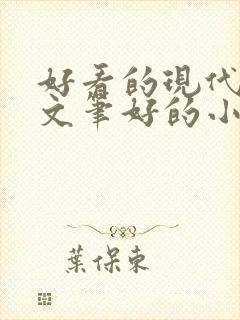 好看的现代
文笔好的小
葉保東